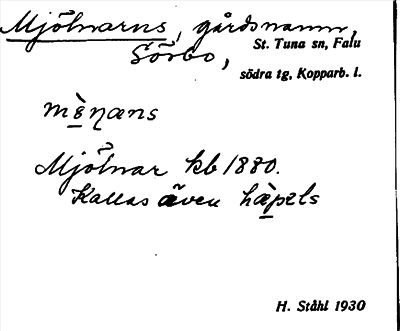 Mjölnarns, gårdsnamn,
Sörbo, St. Tuna sn, Falu
södra tg, Kopparb. l.
Mjölnar kb 1880.
Kallas även hàpels
H. Ståhl 1930